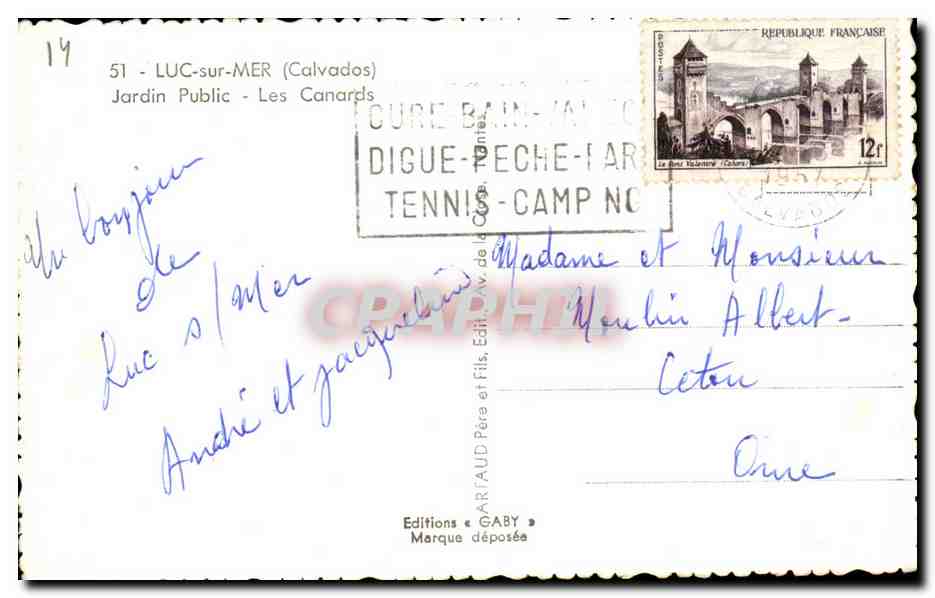 14
51 - LUC-sur-MER (Calvados)
Jardin Public - Les Canards
CURE-BAIN-VA
DIGUE-PECHE-PAR
TENNIS-CAMP NO
POSTES
REPUBLIQUE FRANÇAISE
Le Pont Valentré (Cahors)
12f
1957
CALVADOS
Un bonjour
de
Luc s/Mer
André et Jacqueline
Madame et Monsieur
Moulin Albert-
Ceton
Orne
ARTAUD Père et Fils, Edit., Av. de la Close, Nantes
CPAPHIL
Editions « GABY »
Marque déposée